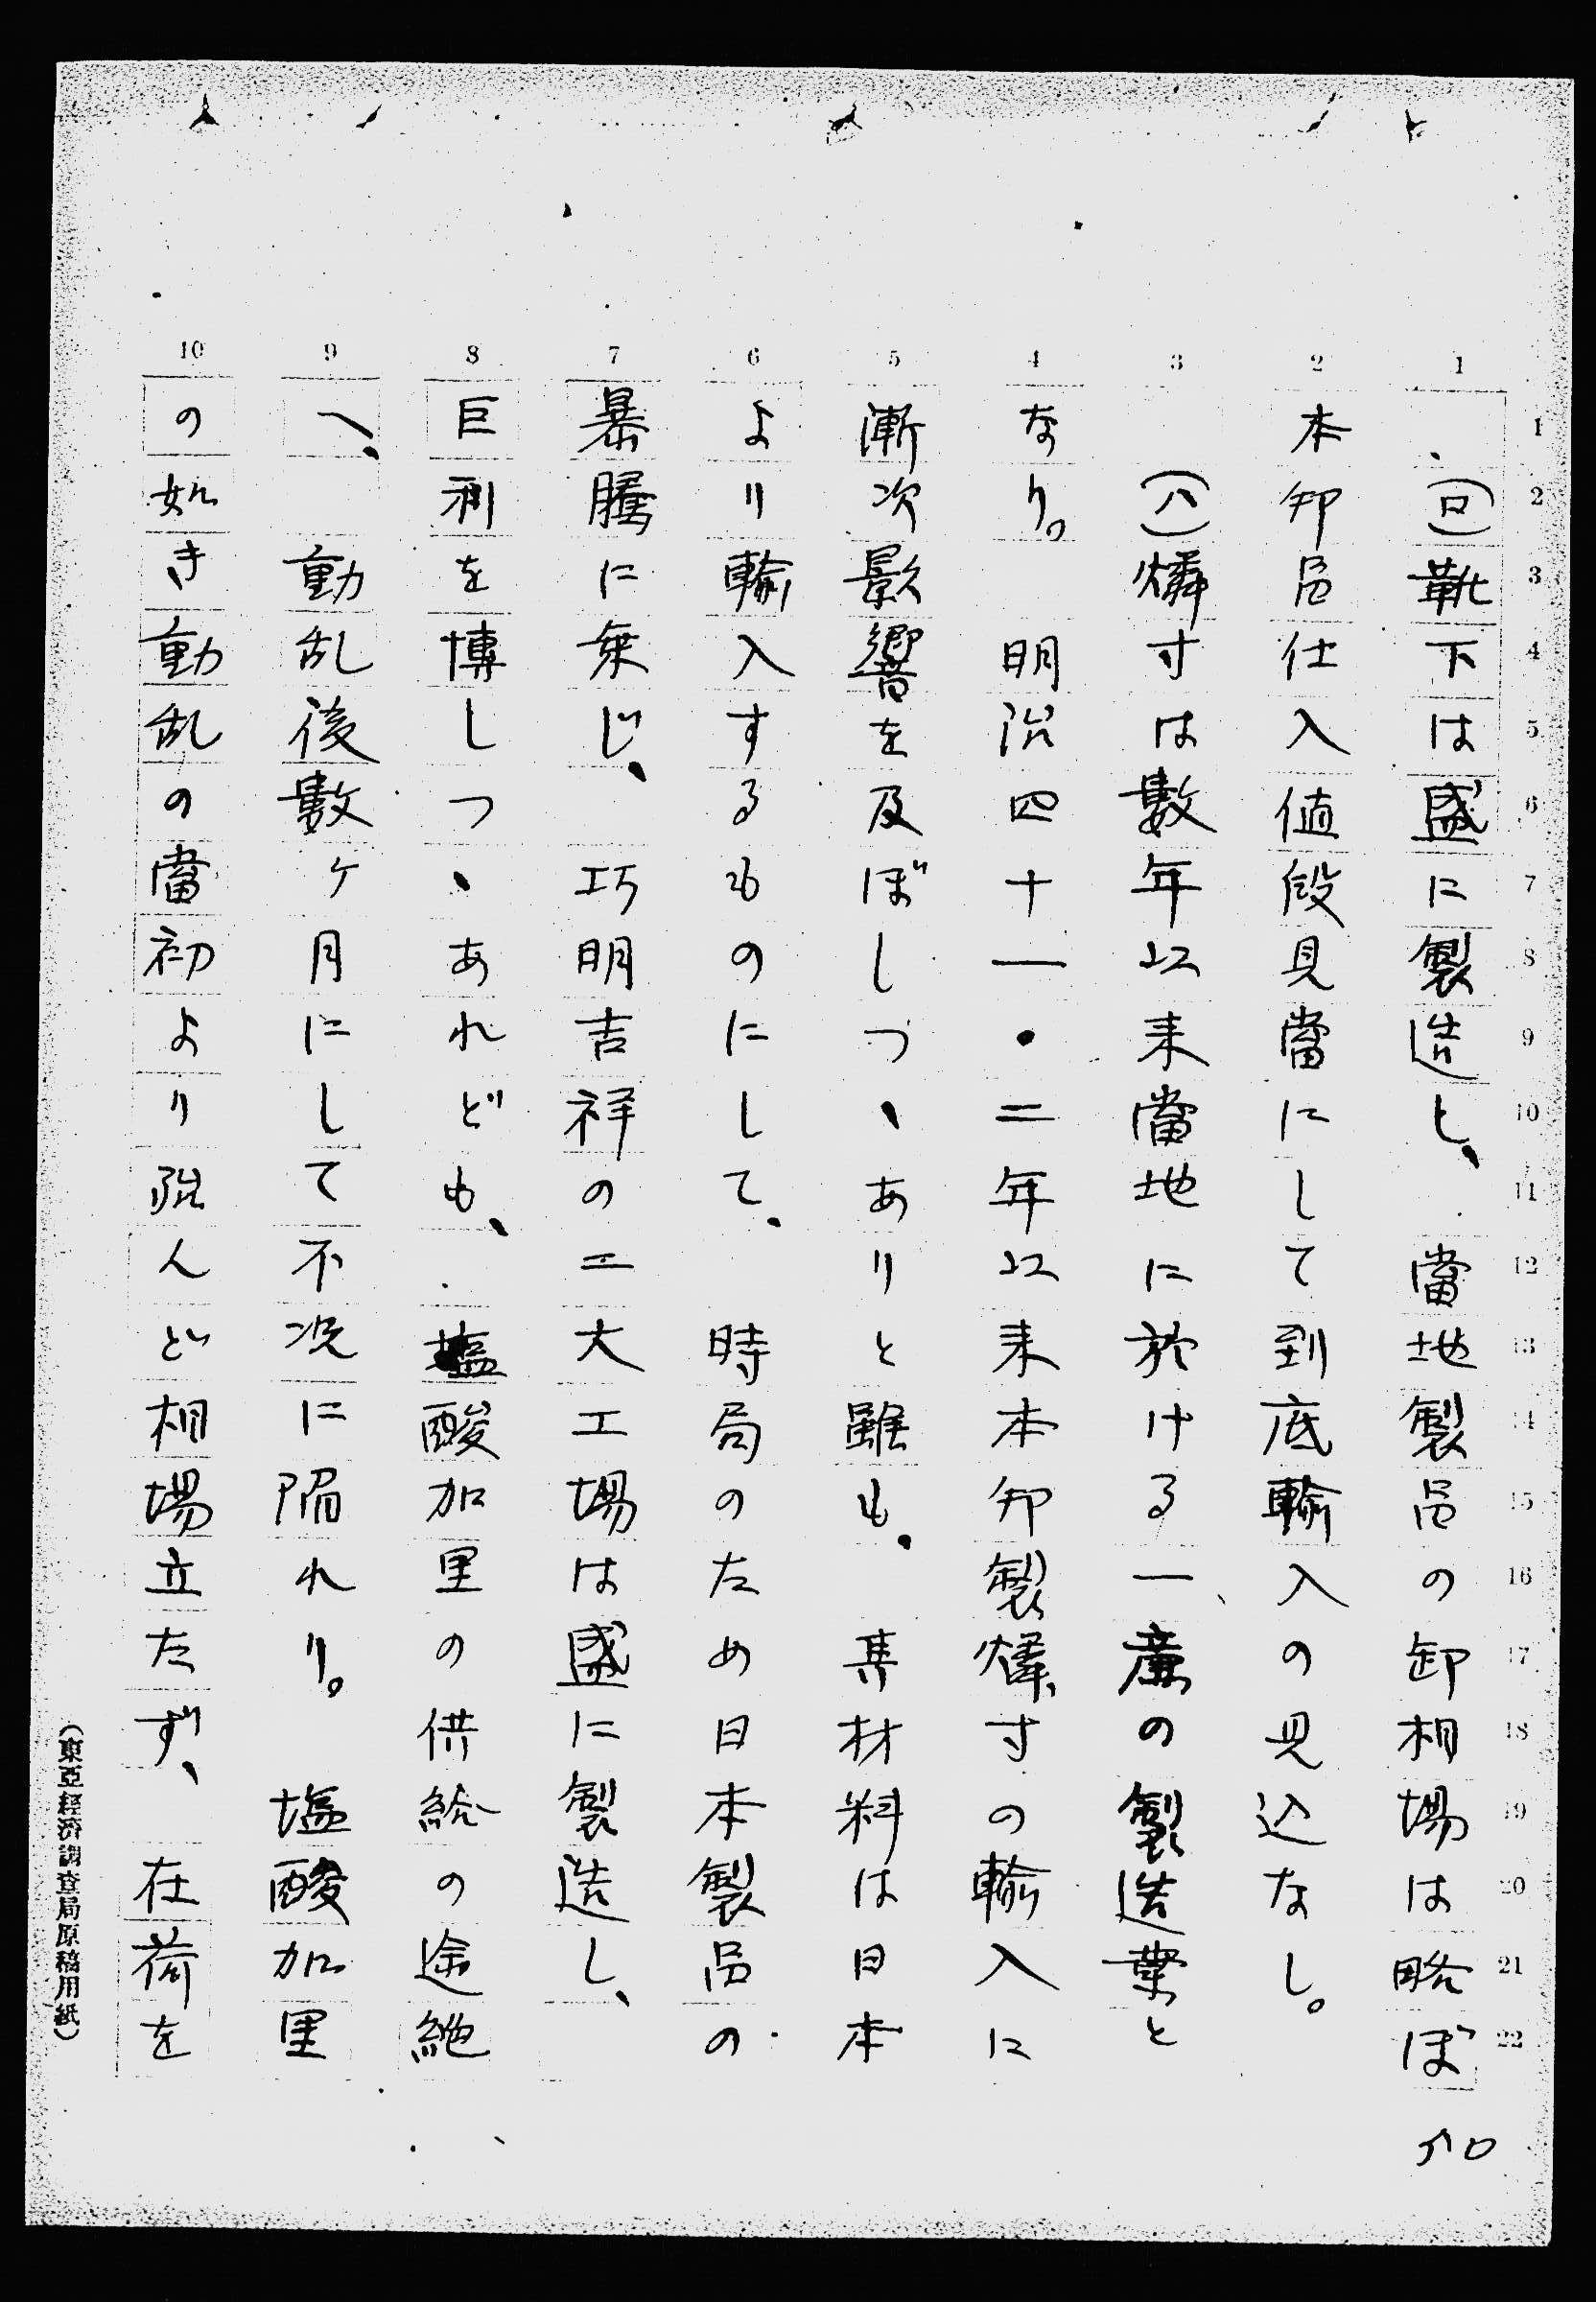 (ロ)靴下は盛に製造し、當地製品の卸相場は略ぼ
本邦品仕入値段見當にして到底輸入の見込なし。
(ハ)燐寸は數年以来當地に於ける一廉の製造業と
なり。明治四十一・二年以来本邦製燐寸の輸入に
漸次影響を及ぼしつゝありと雖も、其材料は日本
より輸入するものにして、時局のため日本製品の
暴騰に乗じ、巧明吉祥の二大工場は盛に製造し、
巨利を博しつゝあれども、塩酸加里の供給の途絶
へ、動乱後數ヶ月にして不況に陥れり。塩酸加里
の如き動乱の當初より殆んど相場立たず、在荷を
(東亞經濟調査局原稿用紙)
1 2 3 4 5 6 7 8 9 10
1 2 3 4 5 6 7 8 9 10 11 12 13 14 15 16 17 18 19 20 21 22